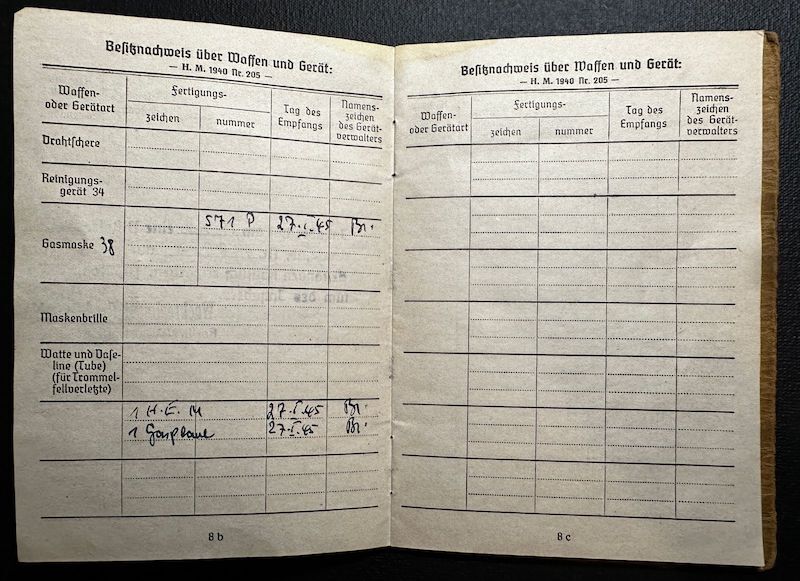 Besitznachweis über Waffen und Gerät:
— H. M. 1940 Nr. 205 —
Waffen-
oder Gerätart
Fertigungs-
zeichen
nummer
Tag des
Empfangs
Namens-
zeichen
des Gerät-
verwalters
Drahtschere
Reinigungs-
gerät 34
571 P 27.I.45 Br.
Gasmaske 38
Maskenbrille
Watte und Vase-
line (Tube)
(für Trommel-
fellverletzte)
1 H. E. M 27.I.45 Br.
1 Gasplane 27.I.45 Br.
8 b
Besitznachweis über Waffen und Gerät:
— H. M. 1940 Nr. 205 —
Waffen-
oder Gerätart
Fertigungs-
zeichen
nummer
Tag des
Empfangs
Namens-
zeichen
des Gerät-
verwalters
8 c